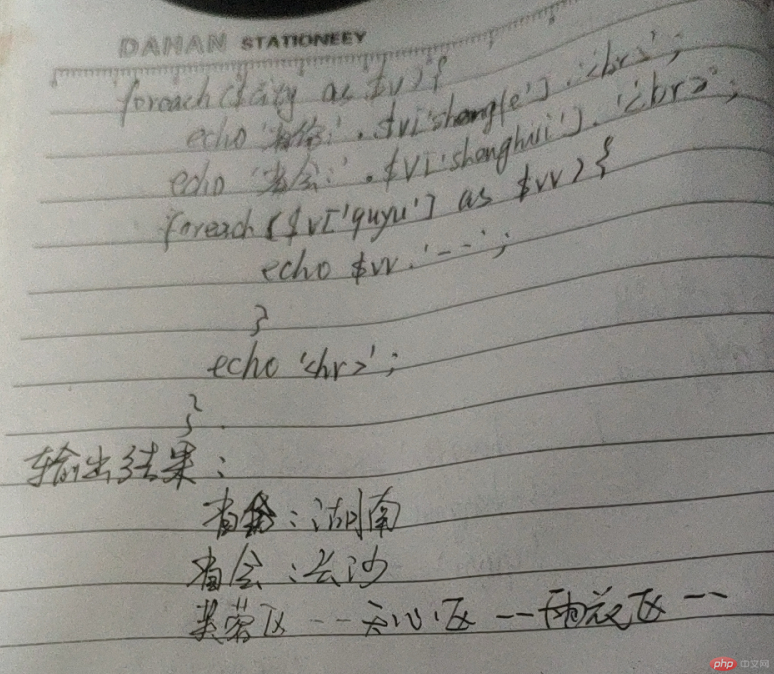 DAHAN STATIONEEY
foreach($city as $v){
echo '省份:'.$v['shengfe'].'<br>';
echo '省会:'.$v['shenghui'].'<br>';
foreach($v['quyu'] as $vv){
echo $vv.'--';
}
echo '<hr>';
}
输出结果:
省份:湖南
省会:长沙
芙蓉区--天心区--雨花区--
php 中文网